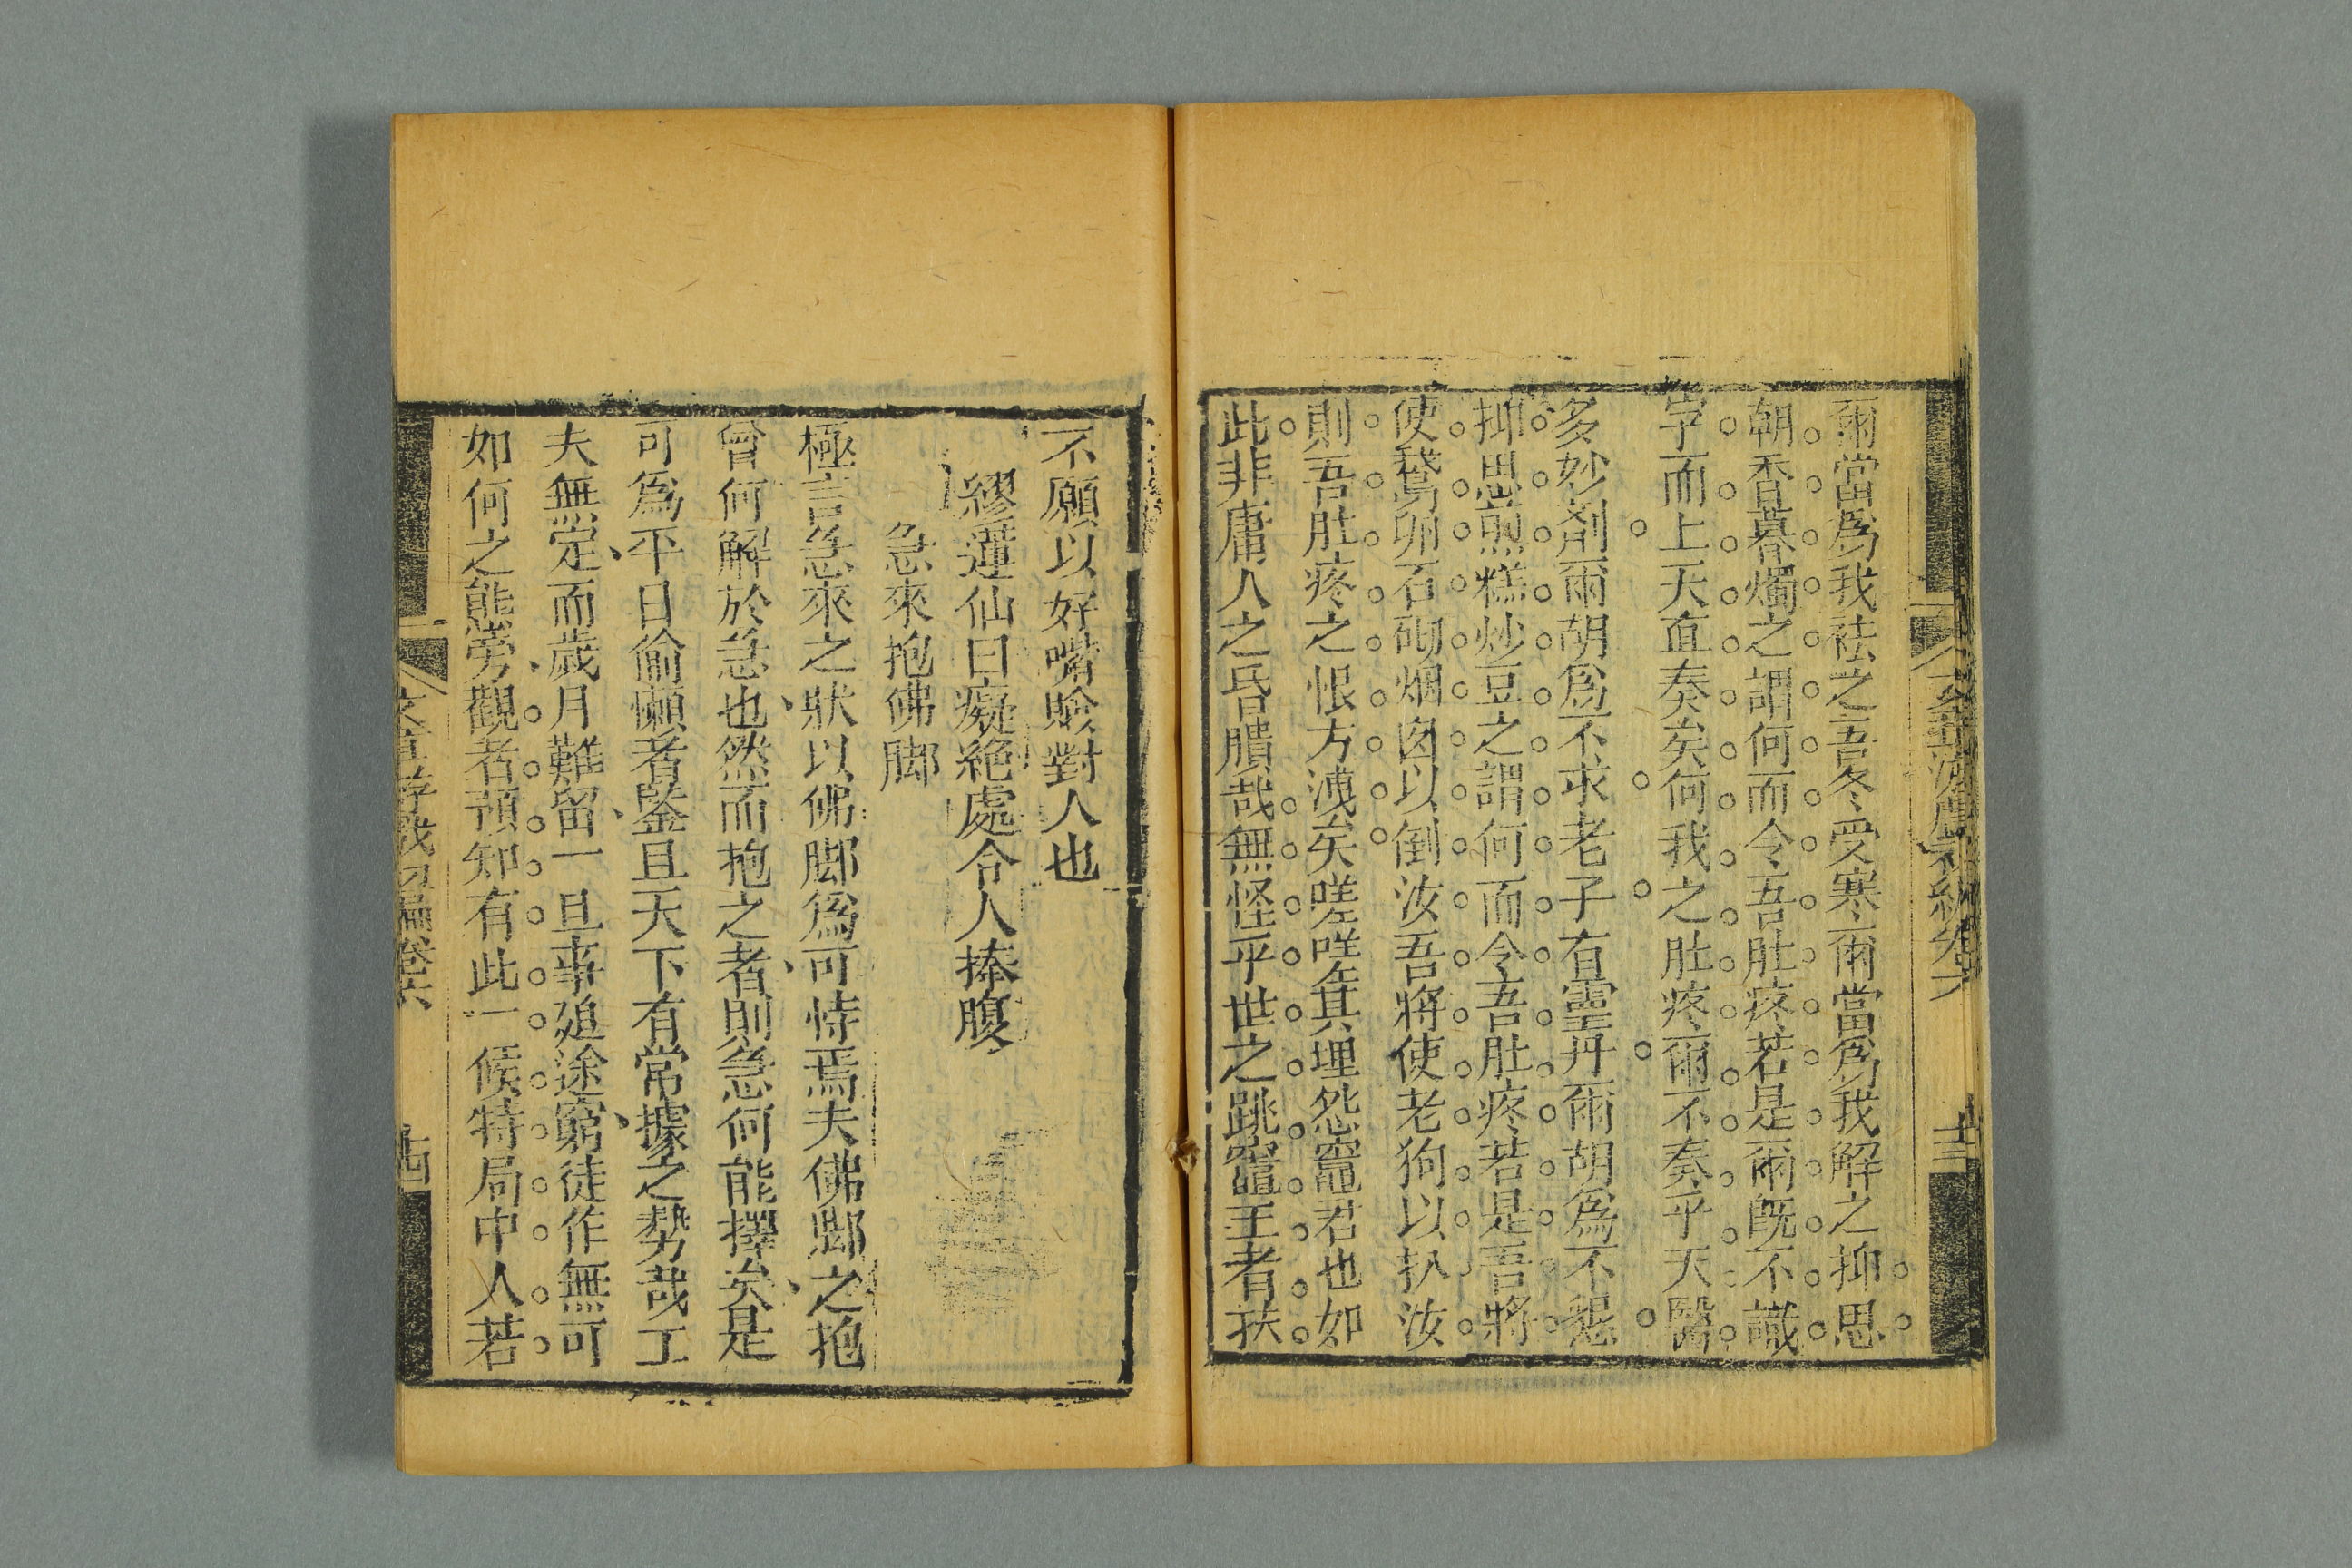 爾當爲我袪之吾冬受寒爾當爲我解之抑思
朝香暮燭之謂何而令吾肚疼若是爾旣不識
字而上天直奏矣何我之肚疼爾不奏乎天醫
多妙剤爾胡爲不求老子有靈丹爾胡爲不懇
抑思煎糕炒豆之謂何而令吾肚疼若是吾將
使鵞卵石砌烟囪以倒汝吾將使老狗以扒汝
則吾肚疼之恨方洩矣嗟嗟其埋怨竈君也如
此非庸人之昏膭哉無怪乎世之跳竈王者扶
不願以好嘴臉對人也
繆蓮仙曰癡絕處令人捧腹
急來抱佛脚
極言急來之狀以佛脚爲可恃焉夫佛脚之抱
曾何解於急也然而抱之者則急何能擇矣是
可爲平日偷懶者鑒且天下有常據之勢哉工
夫無定而歲月難留一旦事廹途窮徒作無可
如何之態旁觀者預知有此一候特局中人若
十四